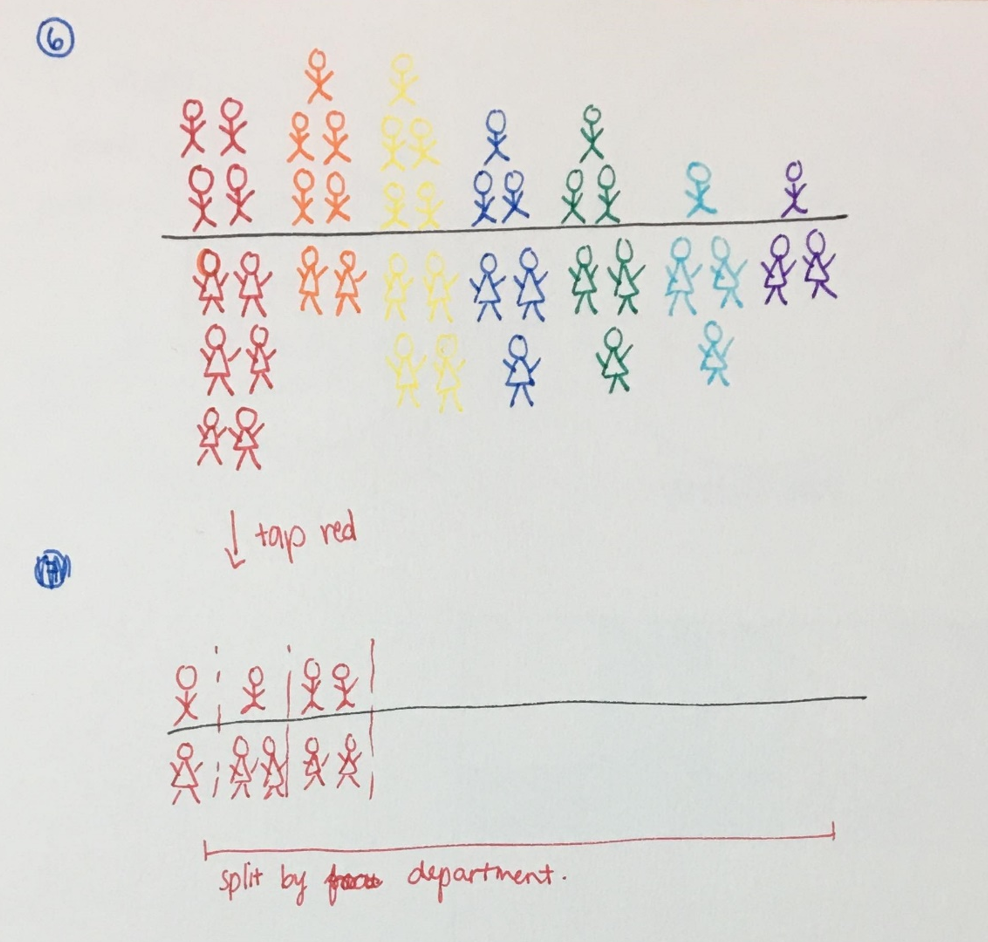 6
tap red
split by department.